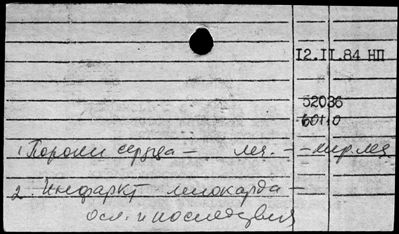 12.II.84 НП
52036
60110
1. Пороки сердца — леч. — – хир. леч
2. Инфаркт миокарда —
осл. и последствия